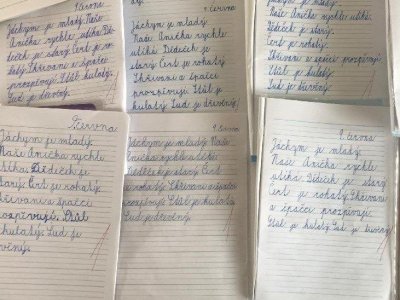 9. června
Jáchym je mladý. Naše
Anička rychle utíká. Dě-
deček je starý. Čert je ro-
hatý. Skřivani a špačci
prozpěvují. Stůl kulatý.
Sud je dřevěný.
9. června
Jáchym je mladý.
Naše Anička rychle
utíká. Dědeček je
starý. Čert je rohatý.
Skřivani a špačci
prozpěvují. Stůl je
kulatý. Sud je dřevěný.
Naše Anička rychle utíká.
Dědeček je starý.
Čert je rohatý.
Skřivani a špačci prozpěvují.
Stůl je kulatý.
Sud je dřevěný.
června
Jáchym je mladý.
Naše Anička rychle
utíká. Dědeček je
starý. Čert je rohatý.
Skřivani a špačci
prozpěvují. Stůl
kulatý. Sud je
dřevěný.
9. června
Jáchym je mladý. Naše
Anička rychle utíká.
Dědeček je starý. Čert je rohatý.
Skřivani a špačci
prozpěvují. Stůl je kulatý.
Sud je dřevěný.
9. června
Jáchym je mladý.
Naše Anička rychle
utíká. Dědeček je starý.
Čert je rohatý. Skřivani
a špačci prozpěvují.
Stůl je kulatý. Sud je dřevěný.